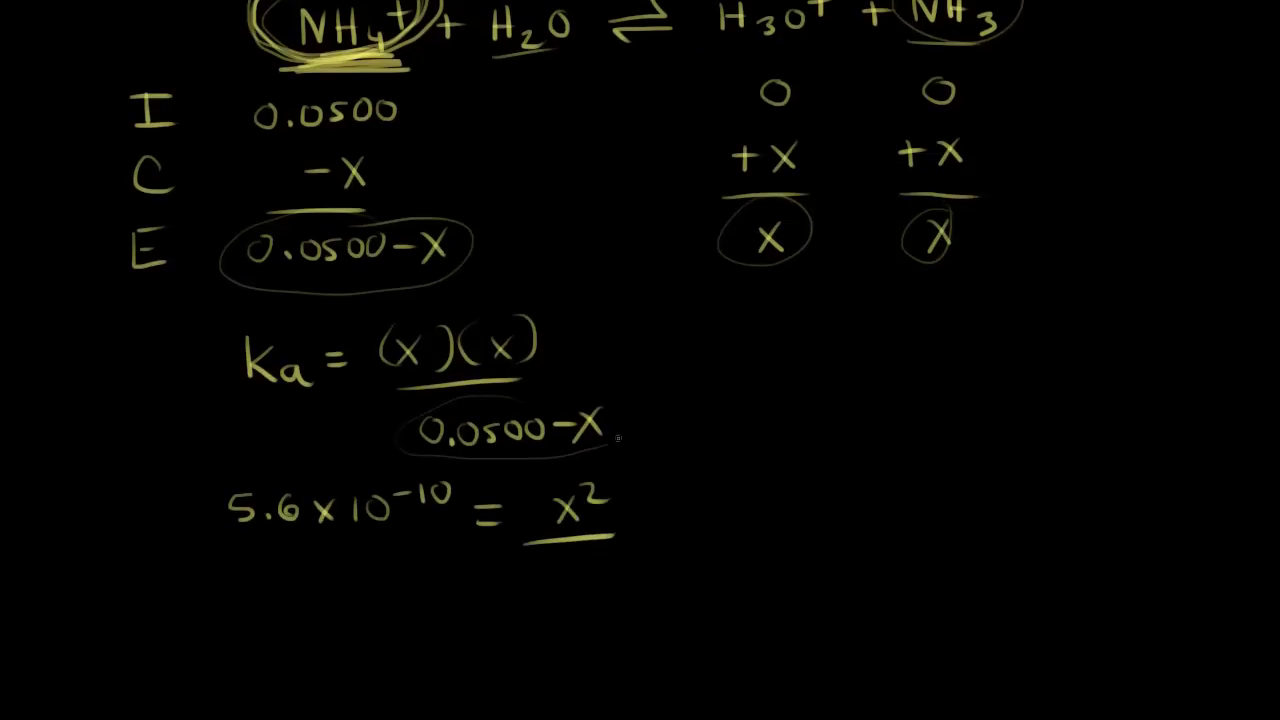 NH₄⁺ + H₂O ⇌ H₃O⁺ + NH₃
I 0.0500 0 0
C -X +X +X
E 0.0500-X X X
Ka = (x)(x)
0.0500-X
5.6 x 10⁻¹⁰ = x²